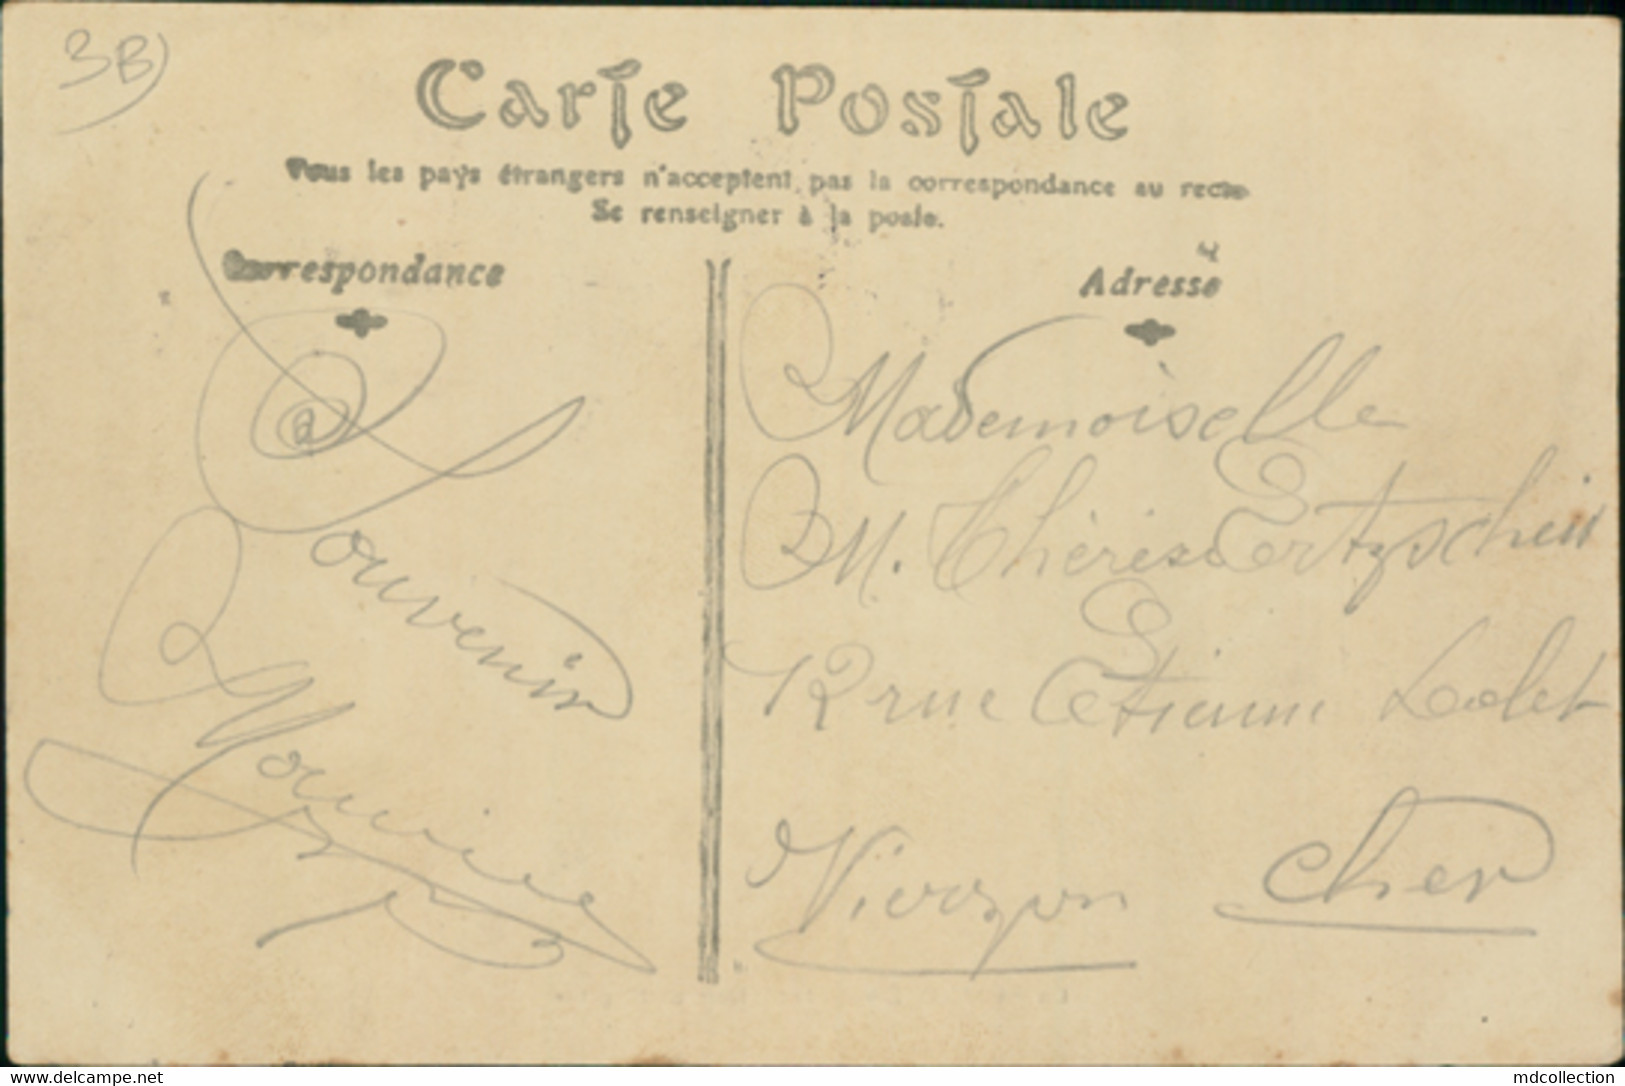 3B)
Carte Postale
Tous les pays étrangers n'acceptent pas la correspondance au recto
Se renseigner à la poste.
Correspondance
Adresse
Souvenir
Mademoiselle
M. Thérèse
12 rue Etienne Dolet
Vierzon Cher
www.delcampe.net
mdcollection